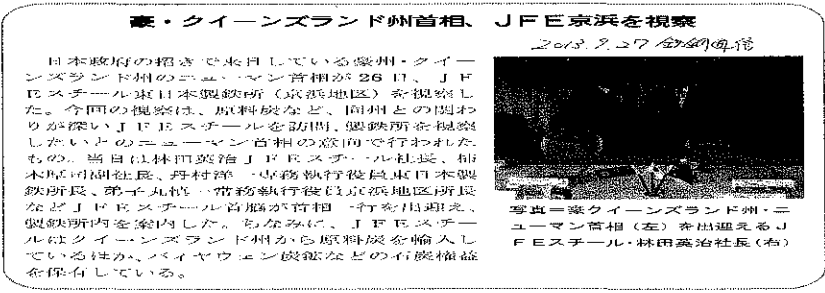 豪・クイーンズランド州首相、JFE京浜を視察
2013.9.27 鉄鋼通信
日本政府の招きで来日している豪州・クイー
ンズランド州のニューマン首相が26日、JF
Eスチール東日本製鉄所（京浜地区）を視察し
た。今回の視察は、原料炭など、同州との関わ
りが深いJFEスチールを訪問、製鉄所を視察
したいとのニューマン首相の意向で行われた
もの。当日は林田英治JFEスチール社長、柿
木厚司副社長、丹村洋一専務執行役員東日本製
鉄所長、弟子丸慎一常務執行役員京浜地区所長
などJFEスチール首脳が首相一行を出迎え、
製鉄所内を案内した。ちなみに、JFEスチー
ルはクイーンズランド州から原料炭を輸入し
ているほか、バイヤウェン炭鉱などの石炭権益
を保有している。
写真＝豪クイーンズランド州・ニ
ューマン首相（左）を出迎えるJ
FEスチール・林田英治社長（右）